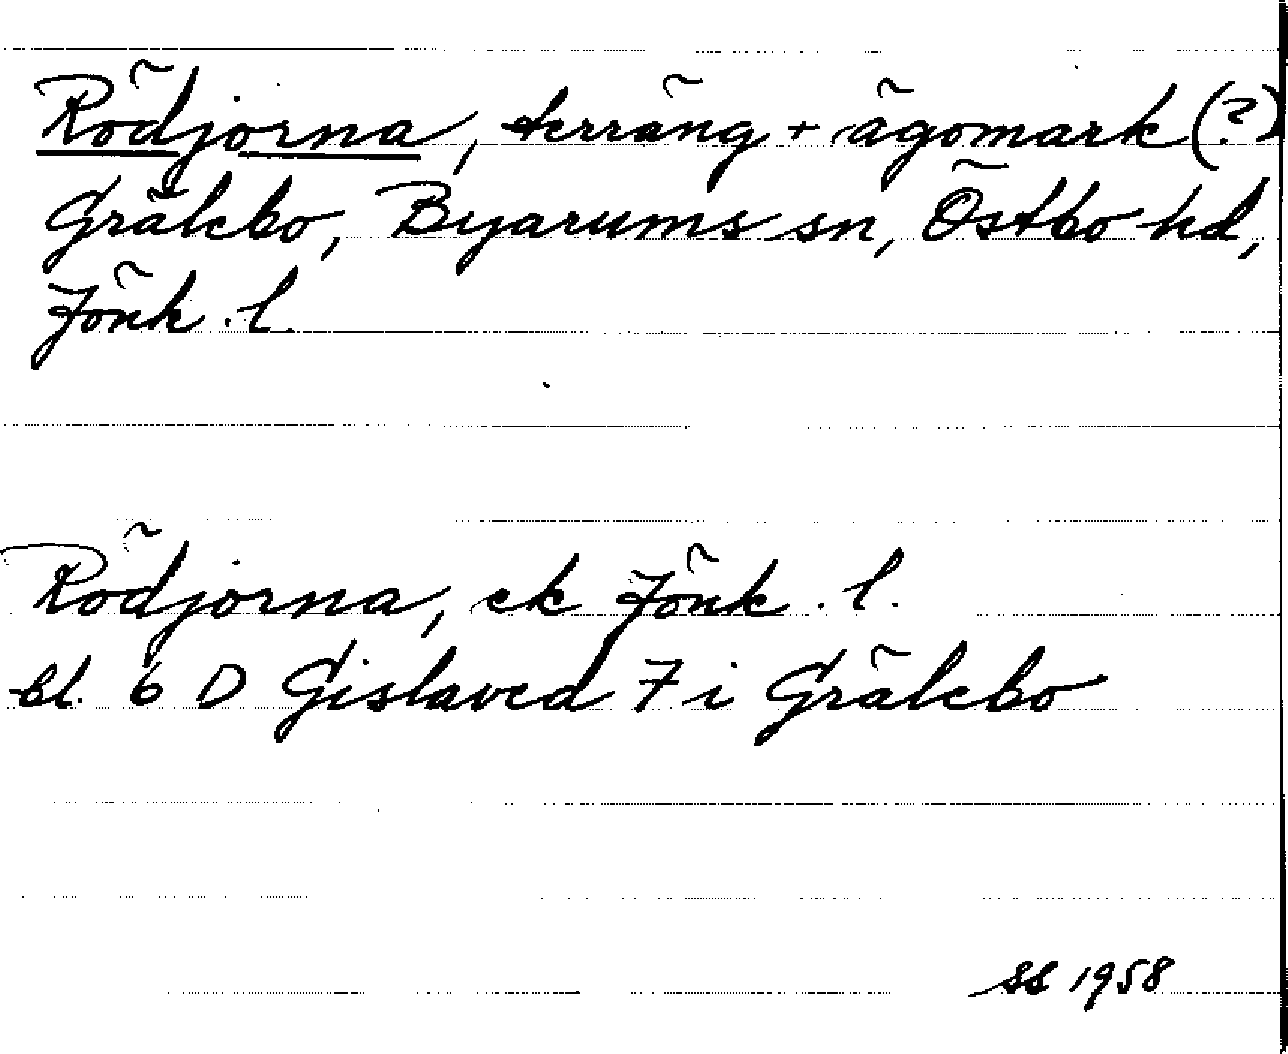 Rödjorna, terräng + ägomark (?)
Grälebo, Byarums sn, Östbo hd,
Jönk. l.
Rödjorna, ek Jönk. l.
bl. 6 D Gislaved 7 i Grälebo
SS 1958